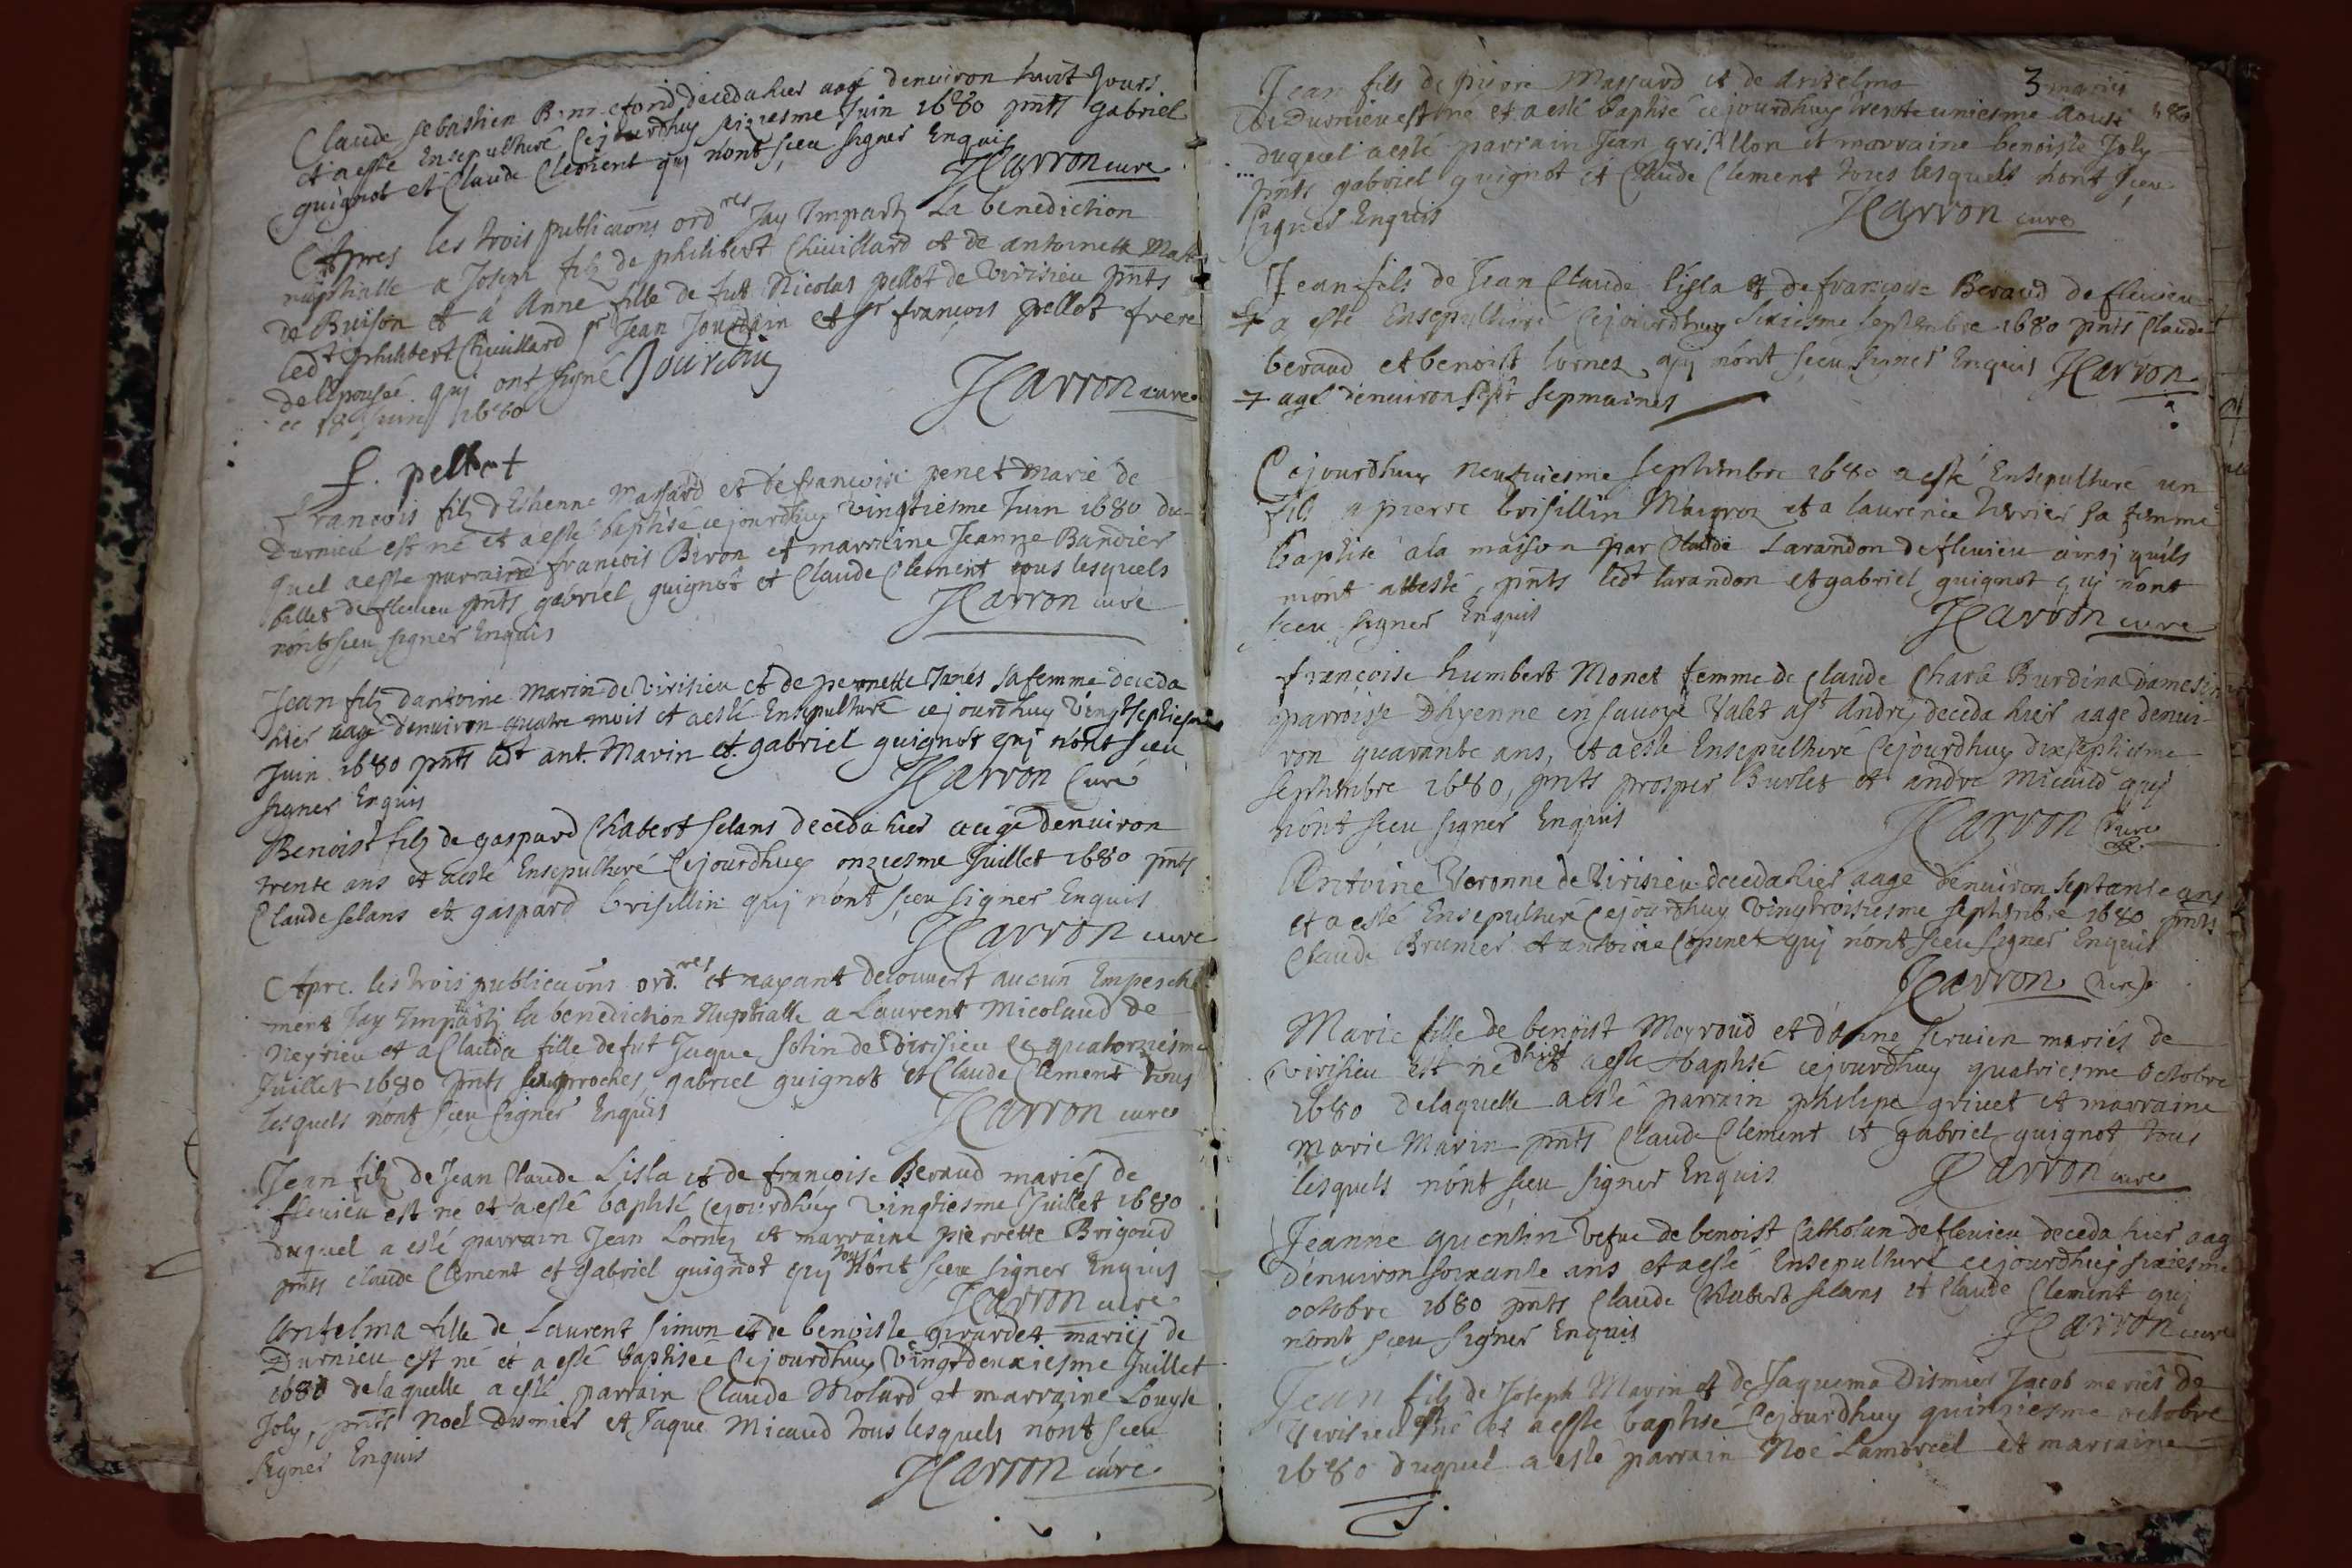 Claude sebastien deceda hier aagé denuiron huict Jours
et a esté Ensepulturé Cejourdhuy Juin 1680 pnts gabriel
guignot et Claude Clement qui nont sceu signer Enquis
Harron cure
Apres les trois publicaons ordres Jay Imparty La benediction
nuptialle a Joseph filz de philibert Chuillard et de antoinette
de Buison et à Anne fille de fut Nicolas pellot de Virisieu pnts
ledt philibert Chuillard sr Jean Jourdain et sr francois pellot frere
de lepousée qui ont signé Jourdain
ce 18 Juin 1680
Harron cure
f. pellot
francois filz dEstienne Massard et de francoise penet Marié de
Durnieu est né et a esté baptisé cejourdhuy vingtiesme Juin 1680 du-
quel a este parraind françois Biron et marraine Jeanne Bandier
billet de flevieu pnts gabriel guignot et Claude Clement tous lesquels
nont sceu signer Enquis
Harron cure
Jean filz dantoine Marin de Virisieu et de pernette sa femme deceda
hier aagé denuiron quatre mois et a esté Ensepulturé cejourdhuy Vingtseptiesme
Juin 1680 pnts ledt ant. Marin et gabriel guignot qui nont sceu
signer Enquis
Harron Curé
Benoist filz de gaspard Chabert selans deceda hier aagé denuiron
trente ans et a esté Ensepulturé Cejourdhuy onziesme Juillet 1680 pnts
Claude selans et gaspard brisillin qui nont sceu signer Enquis
Harron cure
Apre. les trois publicaons ord.res et nayant decouuert aucun Empesche
ment Jay Imparti la benediction Nuptialle a Laurent Micolaud de
Neyrieu et a Clauda fille de fut Jaque solin de Virisieu ce quatorziesme
Juillet 1680 pnts leurs proches, gabriel guignot et Claude Clement tous
lesquels nont sceu signer Enquis
Harron cure
Jean filz de Jean Claude Lisla et de françoise Beraud mariés de
flevieu est né et a esté baptisé cejourdhuy vingtiesme Juillet 1680
duquel a esté parrain Jean Lornez et marraine pierrette Brigoud
pnts claude Clement et Gabriel guignot qui tous nont sceu signer Enquis
Harron cure
Antelma fille de Laurent simon et de benoiste girardet mariés de
Durnieu est né et a esté baptisee Cejourdhuy vingtdeuxiesme Juillet
1680 delaquelle a esté parrain Claude Molard et marraine Louyse
Joly, pnts Noel dismier et Jaque Micaud tous lesquels nont sceu
signer Enquis
Harron curé
Jean fils de pierre Massard et de Antelma
3 mariés
De Durnieu est né et a esté baptisé cejourdhuy trente uniesme Aoust 1680
duquel a esté parrain Jean grisillon et marraine benoiste Joly
pnts gabriel guignot et Claude Clement tous lesquels nont sceu
signer Enquis
Harron cure
Jean fils de Jean Claude lisla et de françoise Beraud de flevieu
+ a esté Ensepulturé Cejourdhuy sixiesme septembre 1680 pnts Claude
beraud et benoist lornez qui nont sceu signer Enquis Harron
+ agé denuiron sept sepmaines
Cejourdhuy neufuiesme septembre 1680 a esté Ensepulturé un
fils a pierre brisillin Maigroz et a laurence sa femme
baptisé à la maison par Claude Larandon de flevieu ainsi quils
mont attesté, pnts ledt larandon et gabriel guignot qui nont
sceu signer Enquis
Harron cure
françoise humbert Monet femme de Claude Burdina
parroisse Dhyenne en sauoye Valet a st André, deceda hier aagé denui-
ron quarante ans, et a esté Ensepulturé Cejourdhuy dixseptiesme
septembre 1680, pnts prosper Burlet et andre Micaud qui
nont sceu signer Enquis
Harron Cure
Antoine Veronne de Virisieu deceda hier aagé denuiron septante ans
et a esté Ensepulturé Cejourdhuy Vingtroisiesme septembre 1680 pnts
Claude Brunier et antoine Copinet qui nont sceu signer Enquis
Harron Cure
Marie fille de benoist Meyroud et danne seruien mariés de
Virisieu est né et a este baptisé cejourdhuy quatriesme octobre
1680 delaquelle a esté parrain philipe griuet et marraine
Marie Marin pnts Claude Clement et gabriel guignot tous
lesquels nont sceu signer Enquis
Harron cure
Jeanne quentin vefue de benoist Catholan de flevieu deceda hier aag
denuiron soixante ans et a esté Ensepulturé cejourdhuy sixiesme
octobre 1680 pnts Claude Chabert selans et Claude Clement qui
nont sceu signer Enquis
Harron cure
Jean filz de Joseph Marin et de Jaquema Dismier Jacob mariés de
Virisieu est né et a esté baptisé Cejourdhuy quinziesme octobre
1680 duquel a esté parrain Noé Lambrcel et marraine